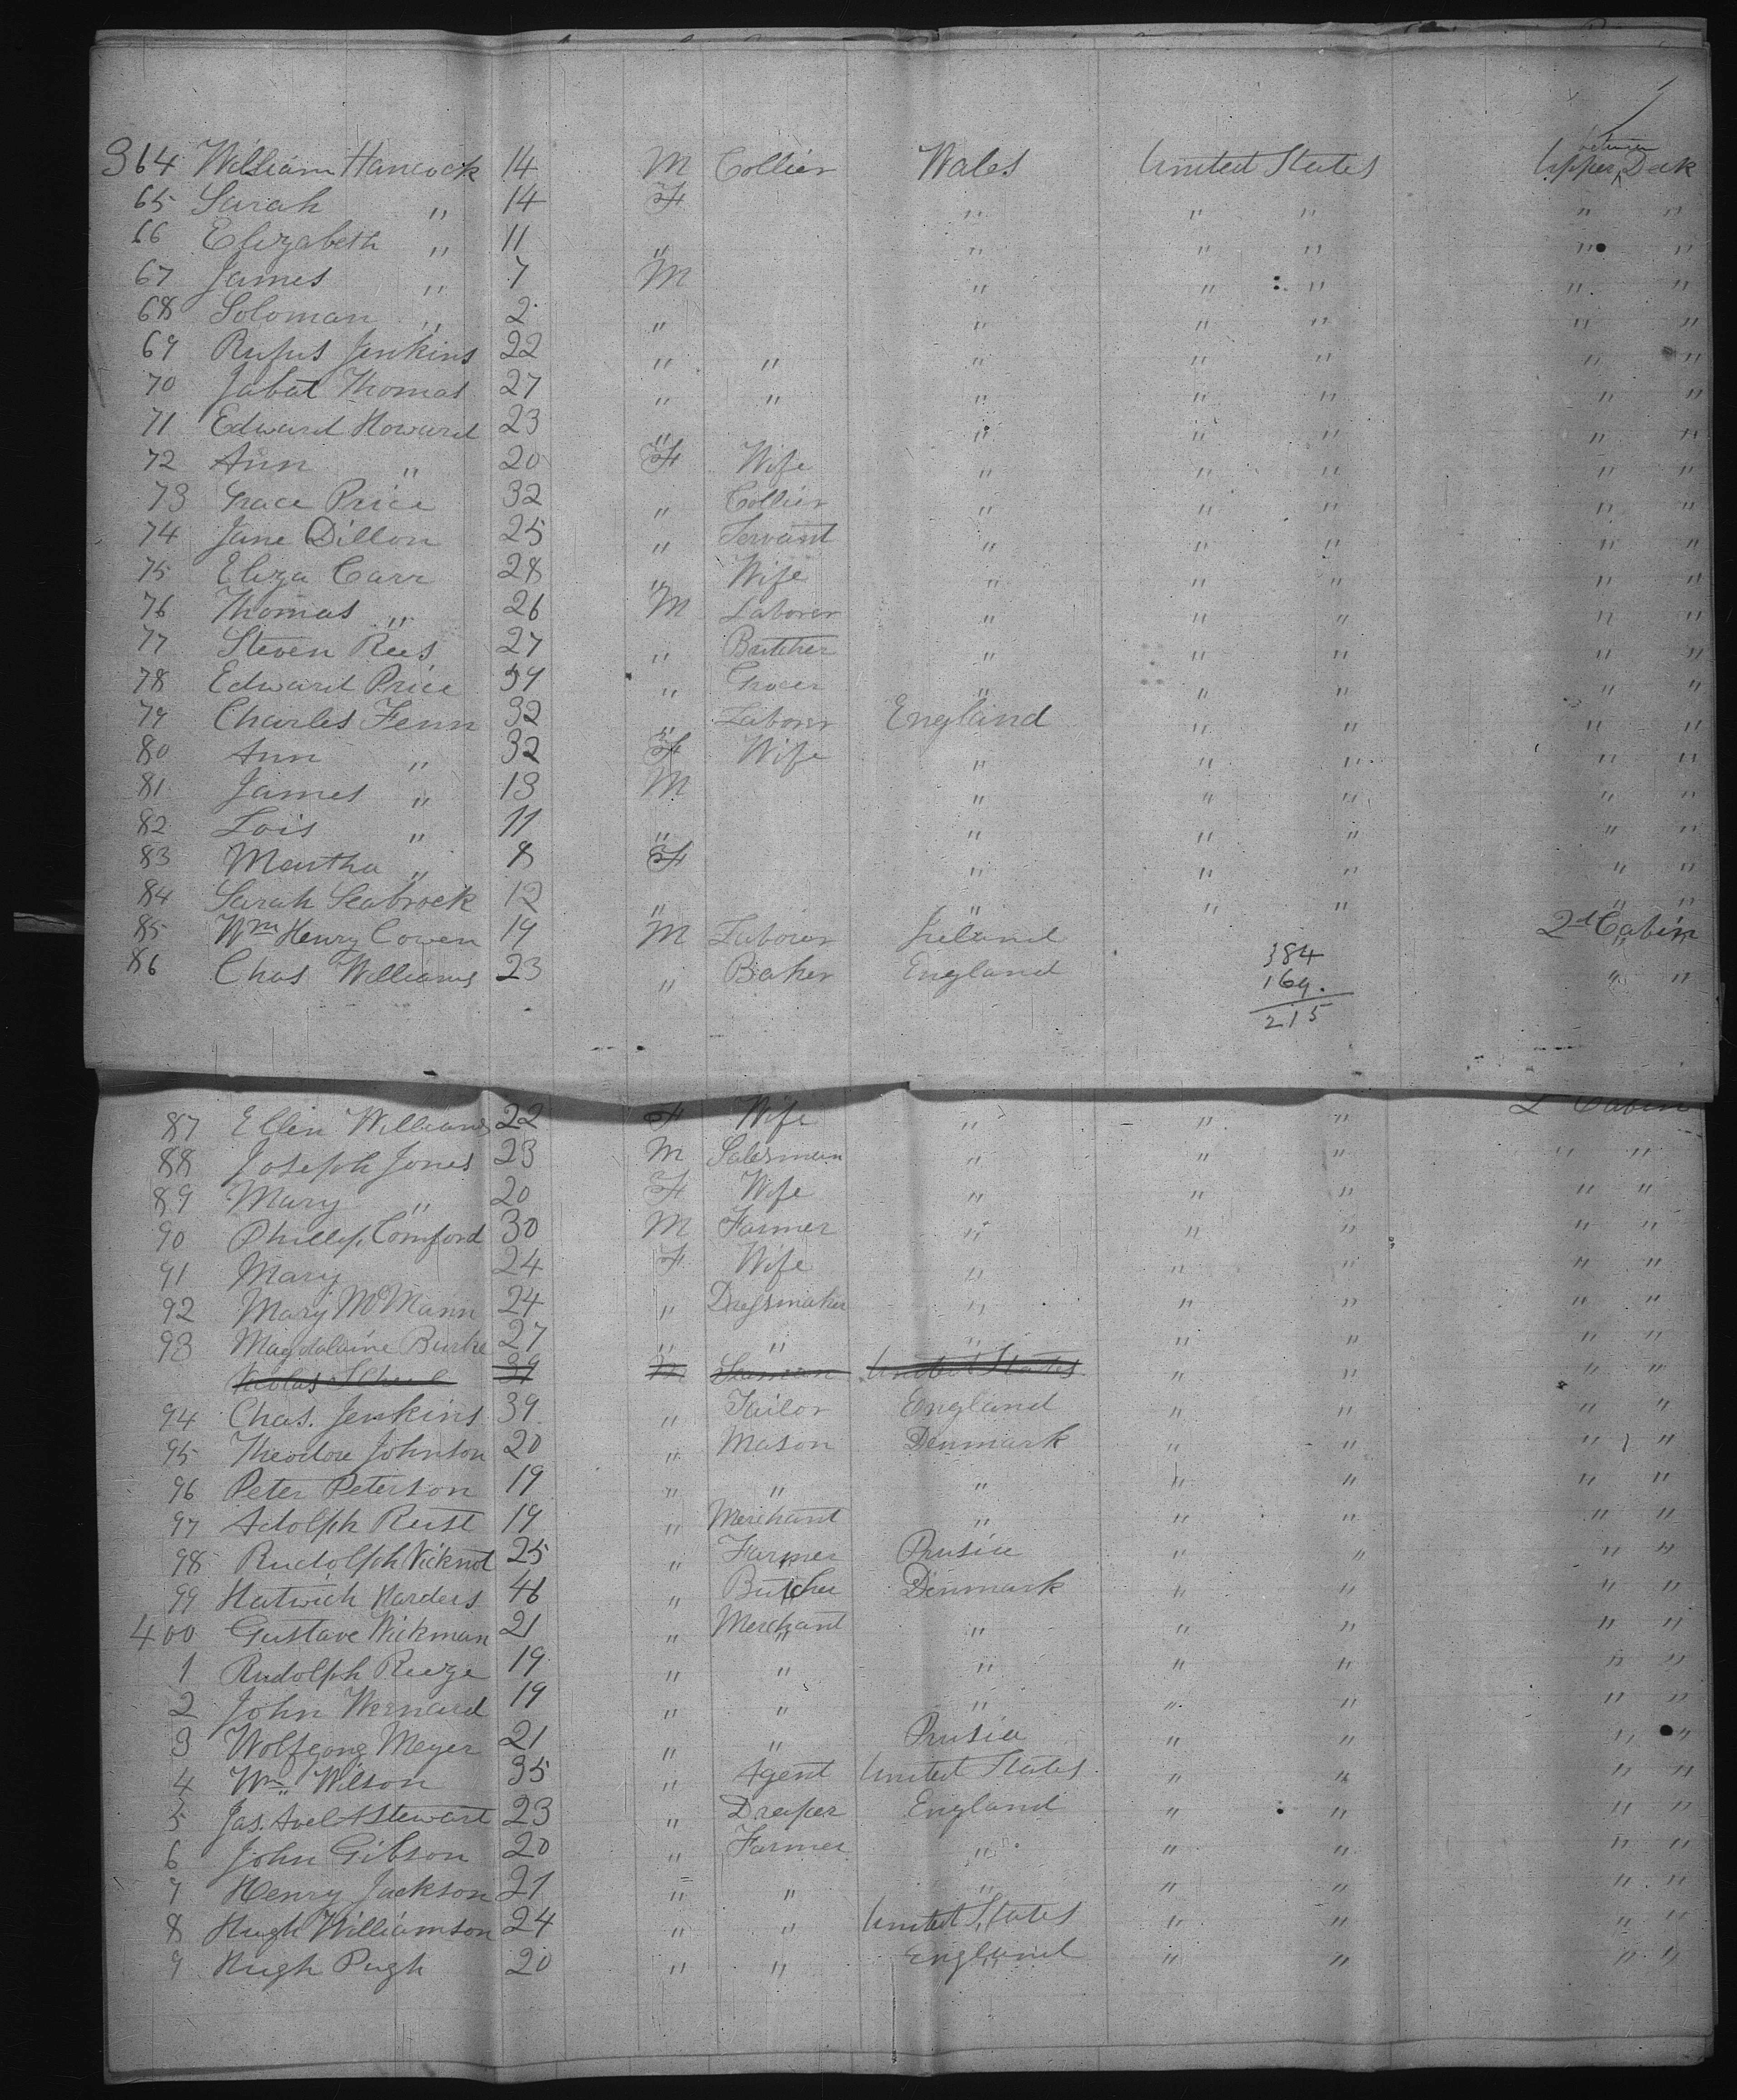 between
364 William Hancock 14 M Collier Wales United States Upper Deck
65 Sarah " 14 F " " " " "
66 Elizabeth " 11 " " " " " "
67 James " 7 M " " " " "
68 Soloman " 2 " " " " " "
69 Rufus Jenkins 22 " " " " " " "
70 Jabat Thomas 27 " " " " " " "
71 Edward Howard 23 " " " " " "
72 Ann " 20 F Wife " " " " "
73 Grace Price 32 " Collier " " " " "
74 Jane Dillon 25 " Servant " " " " "
75 Eliza Carr 28 " Wife " " " " "
76 Thomas " 26 M Laborer " " " " "
77 Steven Rees 27 " Butcher " " " " "
78 Edward Price 54 " Grocer " " " " "
79 Charles Fenn 32 " Laborer England " " " "
80 Ann " 32 F Wife " " " " "
81 James " 13 M " " " " "
82 Lois " 11 " " " " " "
83 Martha " 8 F " " " " "
84 Sarah Seabrock 12 " " " " " "
85 Wm Henry Cowen 19 M Laborer Ireland 2d Cabin
86 Chas Williams 23 " Baker England " "
384
169.
215
87 Ellen Williams 22 F Wife " " " 2 Cabin
88 Joseph Jones 23 M Salesman " " " " "
89 Mary " 20 F Wife " " " " "
90 Phillip Comford 30 M Farmer " " " " "
91 Mary 24 F Wife " " " " "
92 Mary McMann 24 " Dressmaker " " " " "
93 Magdalaine Burke 27 " " " " " " "
39 M United States " " " "
94 Chas. Jenkins 39 " Tailor England " " " "
95 Theodore Johnson 20 " Mason Denmark " " " "
96 Peter Peterson 19 " " " " " " "
97 Adolph Rust 19 " Merchant " " " " "
98 Rudolph Vicknot 25 " Farmer Prusia " " " "
99 Hatwich Harders 46 " Butcher Denmark " " " "
400 Gustave Wickman 21 " Merchant " " " " "
1 Rudolph Reege 19 " " " " " " "
2 John Wernard 19 " " " " " " "
3 Wolfgang Meyer 21 " " Prusia " " " "
4 Wm Wilson 35 " Agent United States " " " "
5 Jas. Stewart 23 " Draper England " " " "
6 John Gibson 20 " Farmer " " " " "
7 Henry Jackson 21 " " " " " " "
8 Hugh Williamson 24 " " United States " " " "
9 Hugh Pugh 20 " " England " " " "